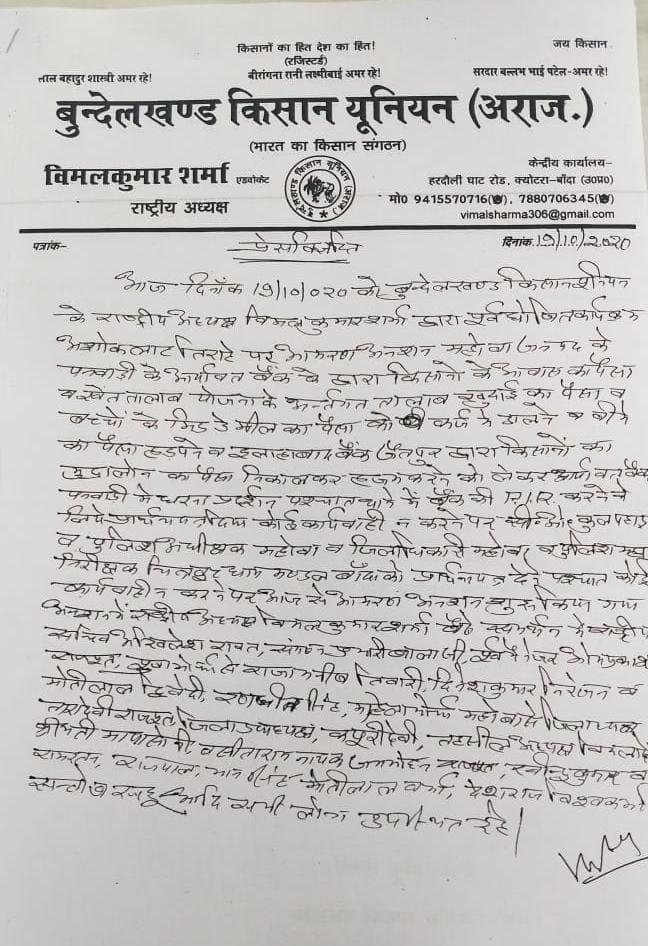 किसानों का हित देश का हित!
जय किसान
(रजिस्टर्ड)
लाल बहादुर शास्त्री अमर रहे!
बीरांगना रानी लक्ष्मीबाई अमर रहे!
सरदार बल्लभ भाई पटेल-अमर रहे!
बुन्देलखण्ड किसान यूनियन (अराज.)
(भारत का किसान संगठन)
विमलकुमार शर्मा एडवोकेट
राष्ट्रीय अध्यक्ष
केन्द्रीय कार्यालय–
हरदौली घाट रोड, क्योटरा-बाँदा (उ०प्र०)
मो० 9415570716, 7880706345
vimalsharma306@gmail.com
पत्रांक-
प्रेस विज्ञप्ति
दिनांक 19/10/2020
आज दिनाँक 19/10/020 को बुन्देलखण्ड किसान यूनियन
के राष्ट्रीय अध्यक्ष विमल कुमार शर्मा द्वारा पूर्व घोषित कार्यक्रम
अशोक लाट तिराहे पर आमरण अनशन महोबा जनपद के
पनवाड़ी के आर्यावर्त बैंक के द्वारा किसानों के आवास का पैसा
व खेत तालाब योजना के अन्तर्गत तालाब खुदाई का पैसा व
बच्चों के मिड डे मील का पैसा को कर्ज में डालने व बीमे
का पैसा हड़पने व इलाहाबाद बैंक जैतपुर द्वारा किसानों का
मुद्रा लोन का पैसा निकालकर हजम करने को लेकर आर्यावर्त बैंक
पनवाड़ी में धरना प्रदर्शन पश्चात थाने में बैंक की F.I.R. करने के
लिये प्रार्थना पत्र दिया कोई कार्यवाही न करने पर सी०ओ० कुलपहाड़
व पुलिस अधीक्षक महोबा व जिलाधिकारी महोबा व पुलिस महा
निरीक्षक चित्रकूट धाम मण्डल बाँदा को प्रार्थना पत्र देने पश्चात कोई
कार्यवाही न करने पर आज से आमरण अनशन शुरू किया गया
अनशन में राष्ट्रीय अध्यक्ष विमल कुमार शर्मा समर्थन में
सचिव अखिलेश रावत, बालाजी, पूर्व मेजर ओमप्रकाश
युवा मोर्चा से राजा मनीष तिवारी, दिनेश कुमार निरंजन व
मोतीलाल द्विवेदी, रणजीत सिंह, महिला मोर्चा महोबा से जिलाध्यक्ष
तारादेवी राजपूत, जिला उपाध्यक्ष, कपूरी देवी, तहसील अध्यक्ष
श्रीमती व सीताराम नायक जगमोहन राजपूत, रवीन्द्र कुमार व
रामरतन, राजपाल, मान सिंह मोतीलाल वर्मा, देशराज विश्वकर्मा
सन्तोष आदि सभी लोग उपस्थित रहे।